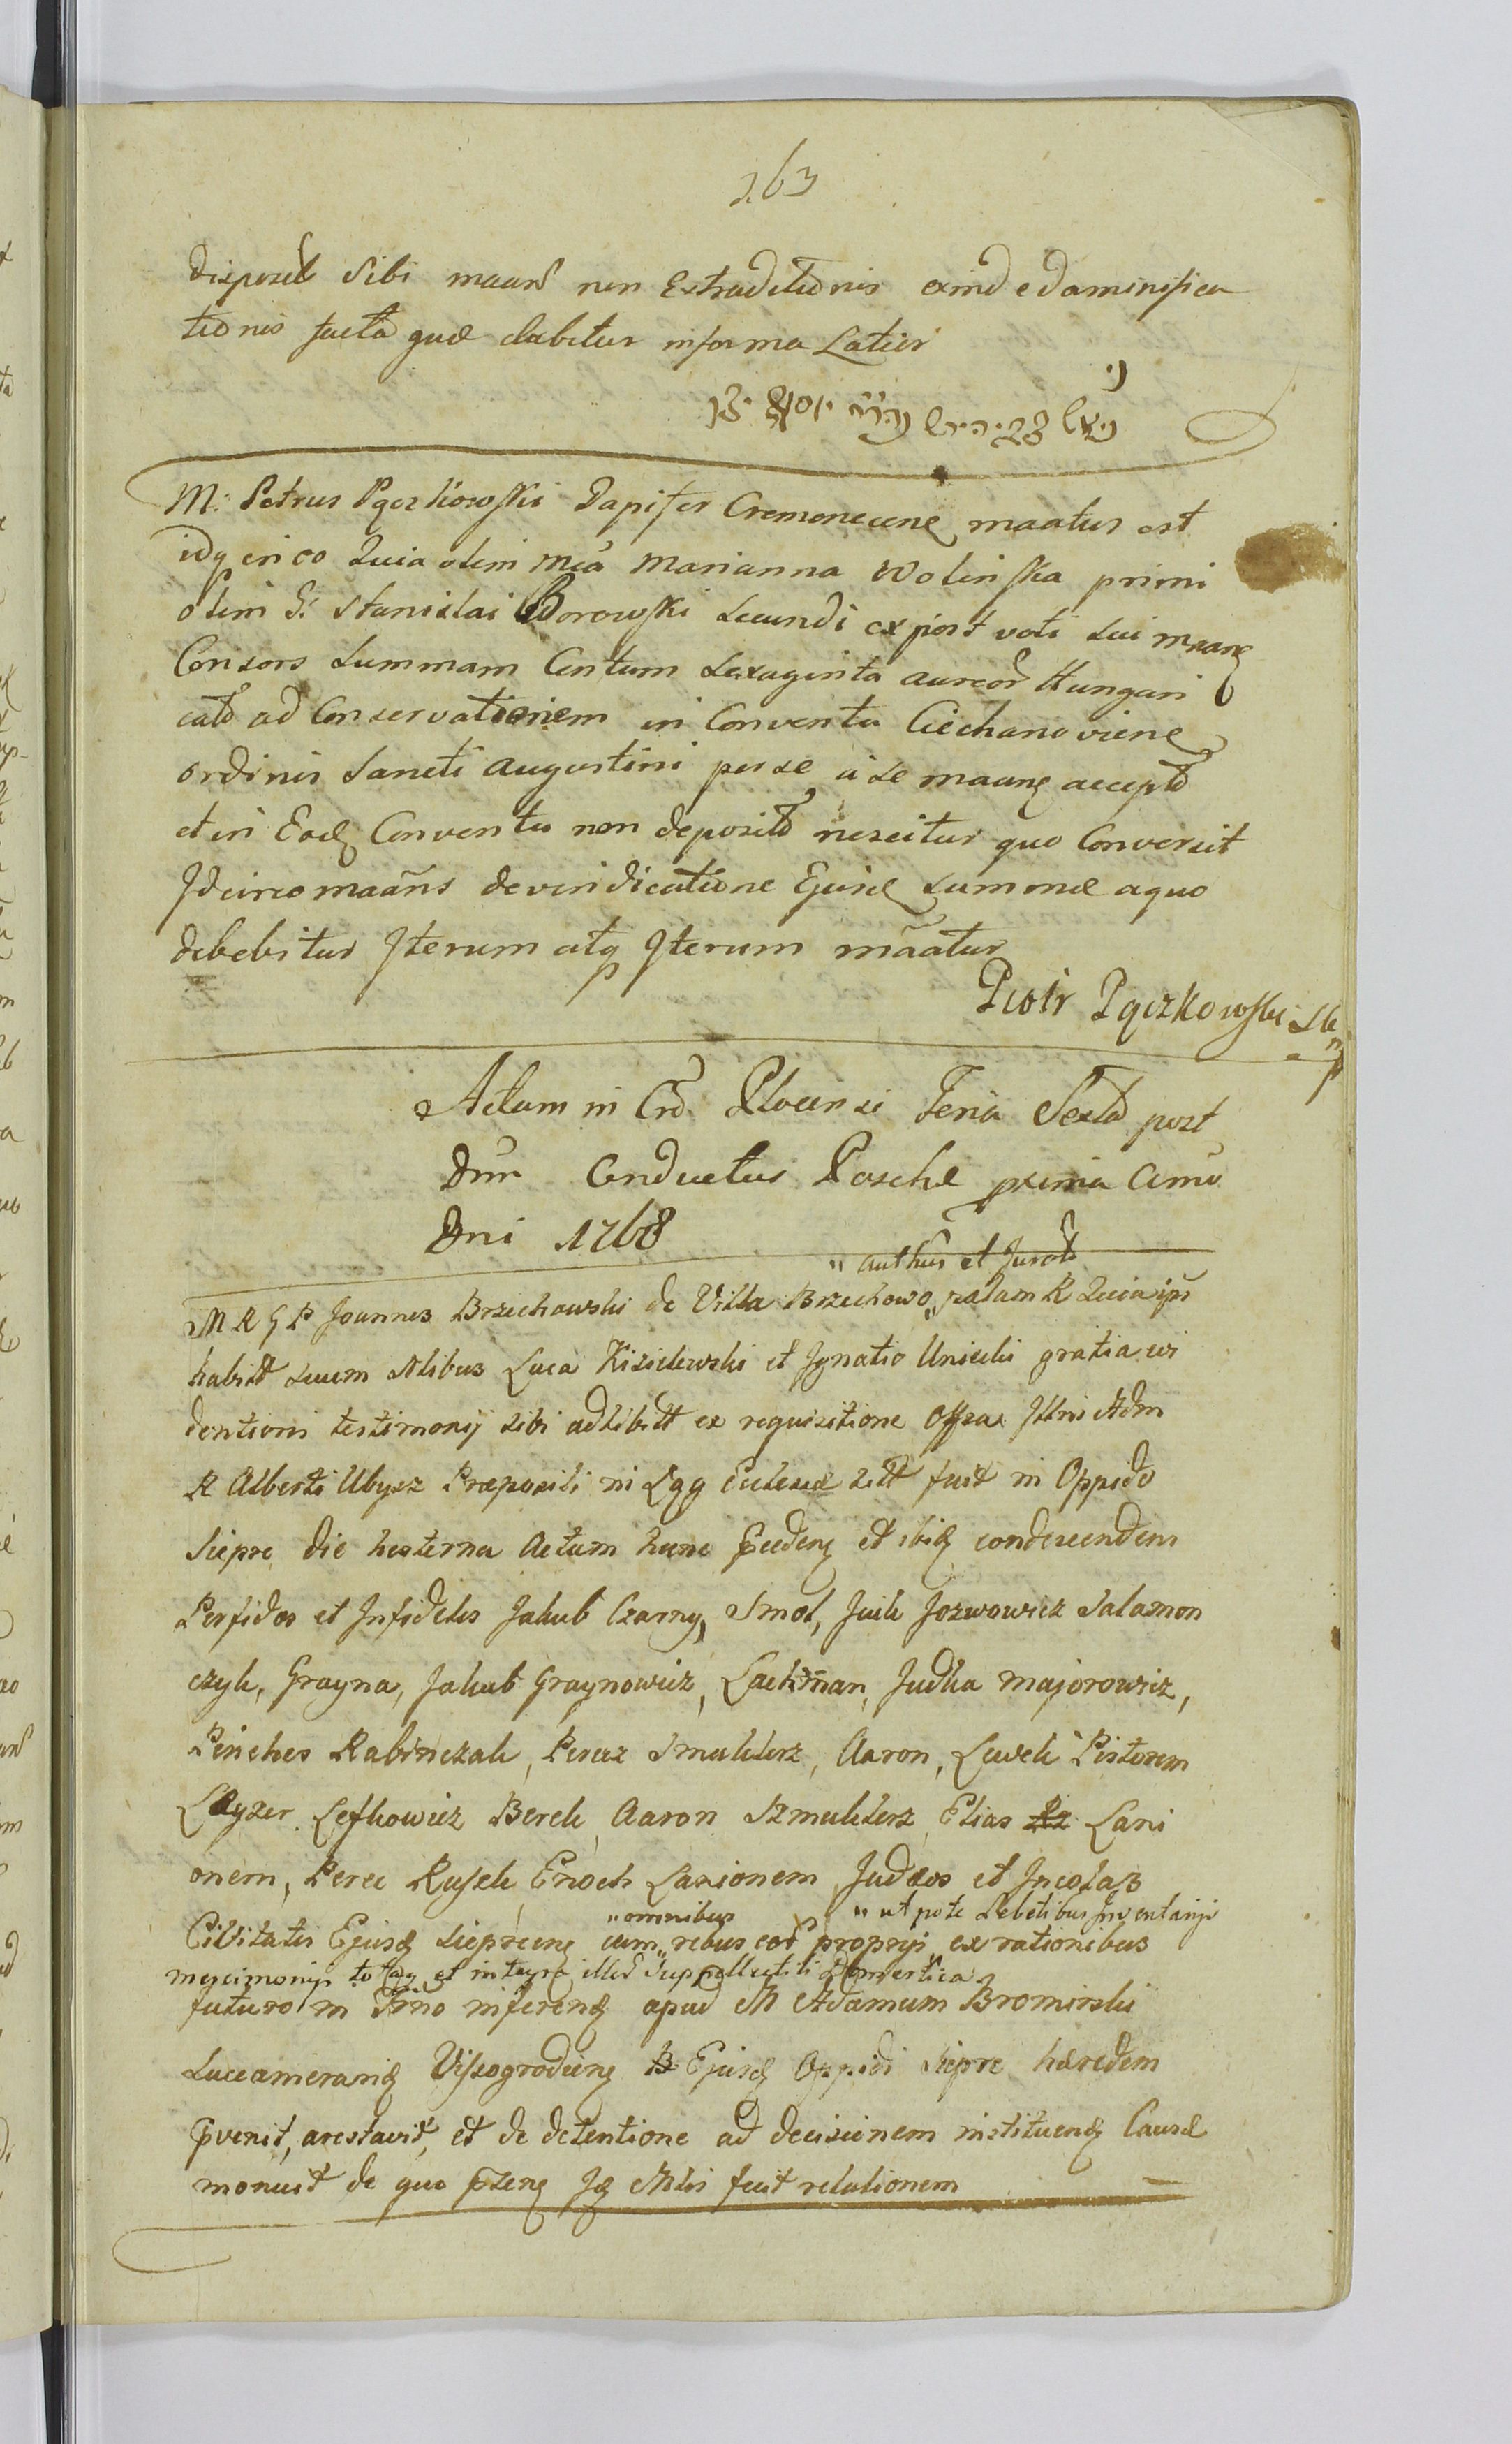 263
disposit Sibi maans non Extraditionis exinde daminifica
tionis facta quæ dabitur in forma Latiori
M: Petrus Pączkowski Dapifer Cremenecens maatur est
idq in eo Quia olim Mca Marianna Wolinska primi
olim G: Stanislai Borowski secundi ex post voti sui maans
Consors Summam Centum Sexaginta aureor Hungari
cal ad Conservationem in Conventu Ciechanoviens
ordinis Sancti Augustini per se a se maans accepta
et in Eod Conventu non deposita nescitur quo Conversit
Idcirco maans de vindicatione Ejusd Summæ a quo
debebitur Iterum atq Iterum maatur
Piotr Pączkowski
Actum in Crō Plocensi Feria Sexta post
Dnm Conductus Paschæ proxima Anno
Dni 1768
"authen et Jurat
M R G P Joannes Brzechowski de Villa Brzechowo " palam R Quia ipse
habitt secum Nlibus Luca Kisielewski et Ignatio Unicki gratia evi
dentioris testimonij sibi adhibitt ex requisitione Offsa Illris Adm
R Alberti Ubysz Præpositi in Lgg Ecclesiæ Titt fuit in Oppido
Sieprc die hesterna Actum hunc præcedens et ibid condescendens
Perfidos et Infideles Jakub Czarny, Smol, Juik Jozwowicz Salamon
czyk, Grayna, Jakub Graynowicz, Lachman, Judka Majorowicz,
Pinches Rabinczak, Perez Smuklerz, Aaron, Lewek Pistorem
Layzer Lefkowicz Berek, Aaron Szmuklerz, Elias Lani
onem, Perec Rusek, Enoch Lanionem Judæos et Incolas
"omnibus "utpote Debitibus Inventarijs
Civitatis Ejusd Sieprcens cum " rebus eor proprijs " ex rationibus
mercimonijs totaq et integra illor Suppellectili Domestica
futuro in Trno inferend apud M Adamum Bromirski
Succamerarid Vissogrodiens Ejusd Oppidi Sieprc hæredem
prævenit, arestavit, et de detentione ad decisionem instituend Causæ
monuit de quo præsens Id Mlis fecit relationem